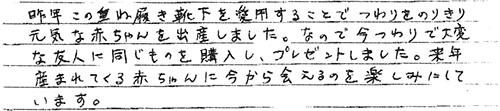 昨年この重ね履き靴下を愛用することでつわりをのりきり
元気な赤ちゃんを出産しました。なので今つわりで大変
な友人に同じものを購入し、プレゼントしました。来年
産まれてくる赤ちゃんに今から会えるのを楽しみにして
います。